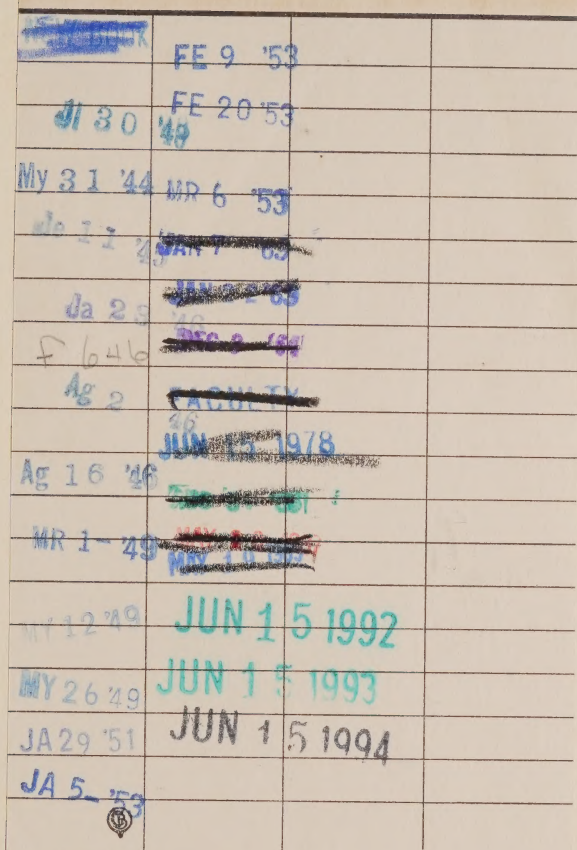 NEW BOOK
Jl 30 '43
My 31 '44
Je 11 '45
Ja 28 '46
F 6 46
Ag 2 46
Ag 16 '46
MR 1- '49
MY 12 '49
MY 26 '49
JA 29 '51
JA 5- '53
FE 9 '53
FE 20 '53
MR 6 '53
JAN 7 '63
JAN 22 '63
FACULTY
JUN 15 1978
JUN 15 1992
JUN 15 1993
JUN 15 1994